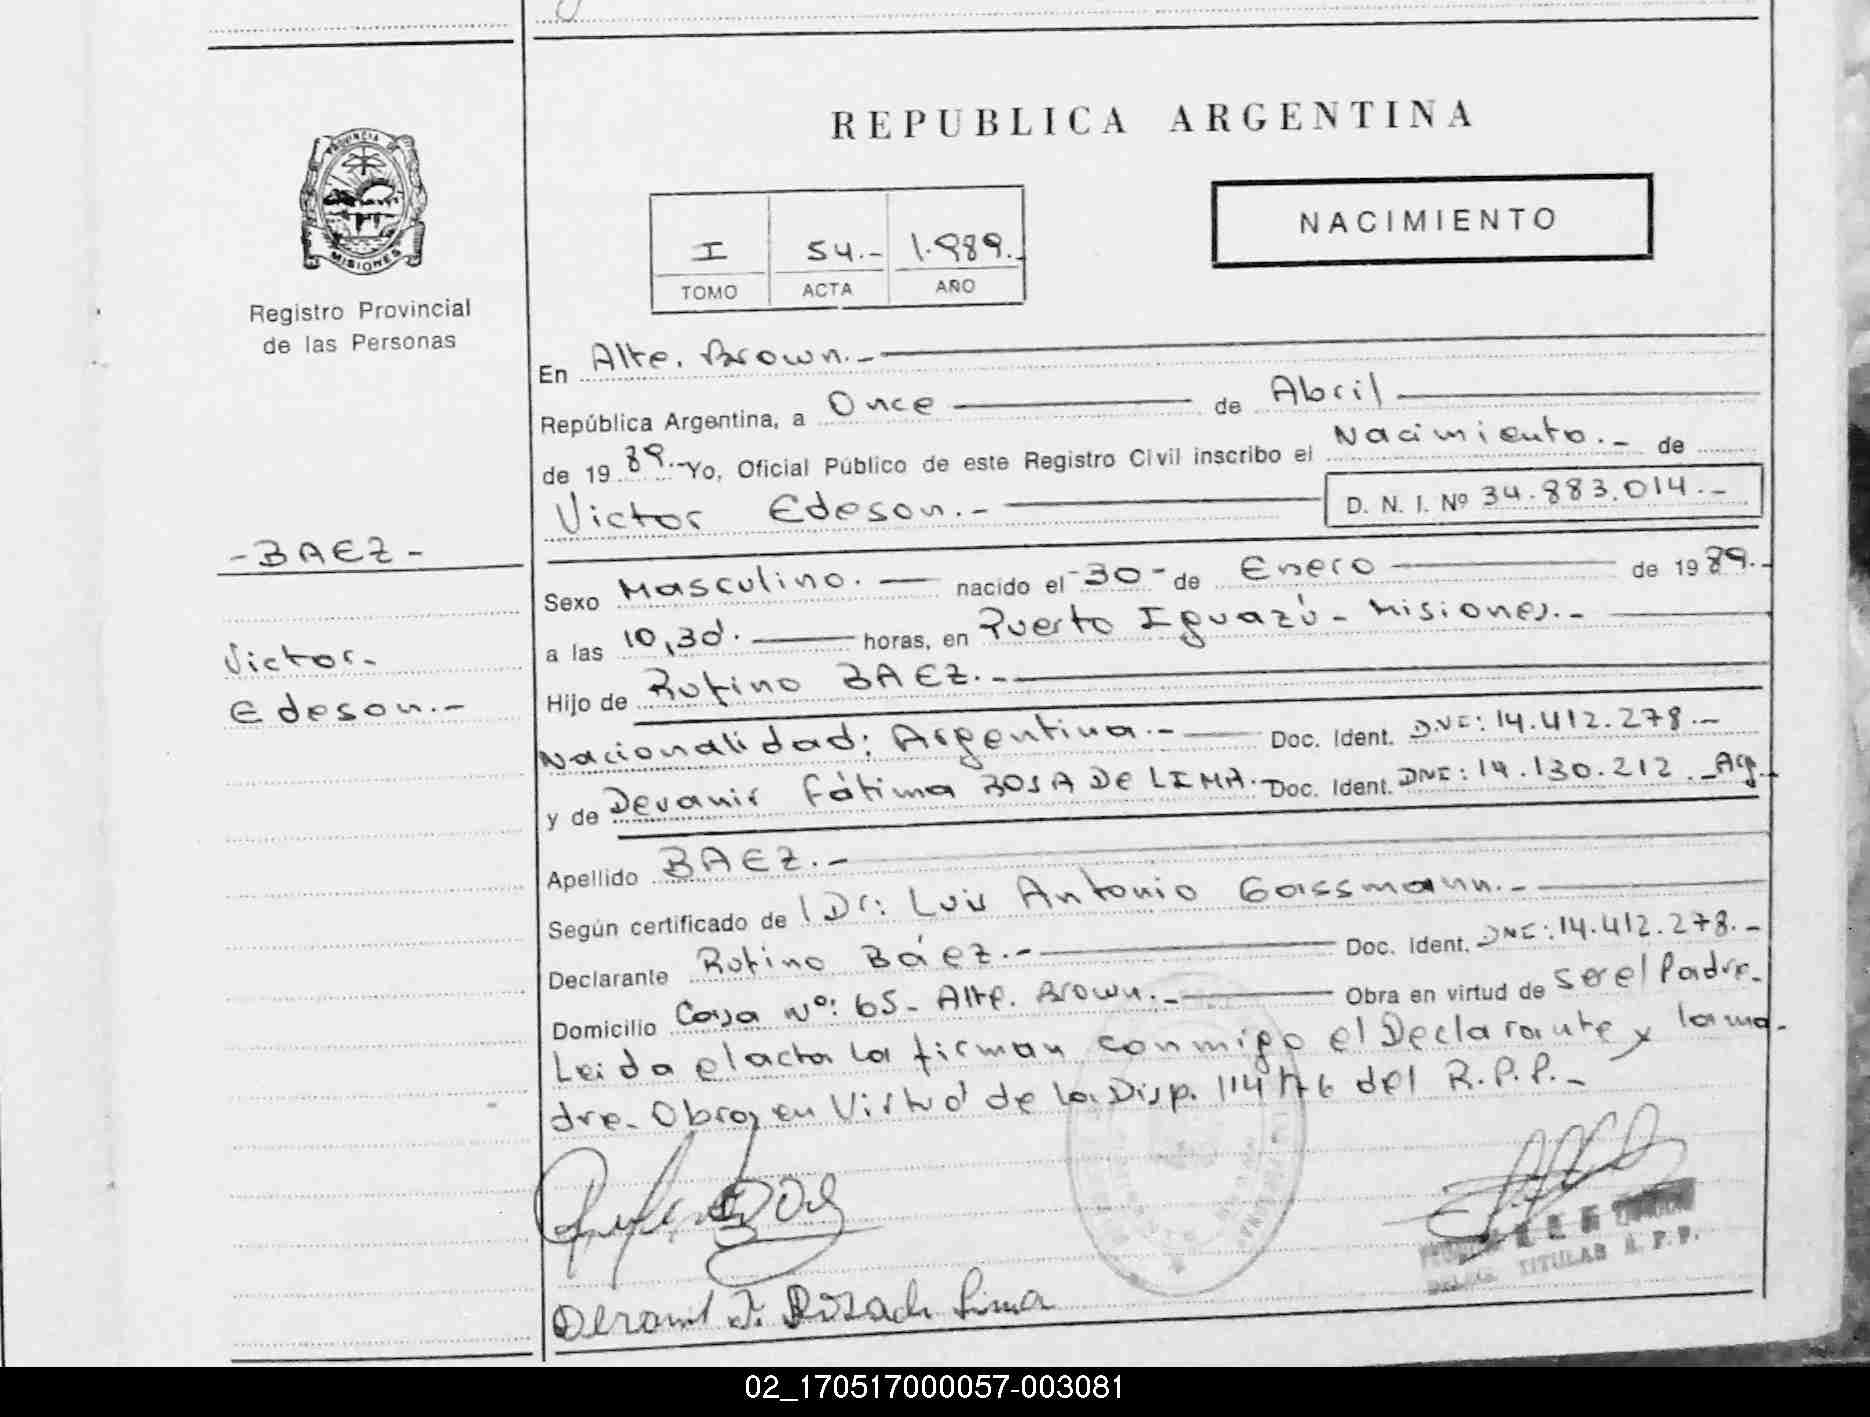 PROVINCIA
MISIONES
Registro Provincial
de las Personas
- BAEZ -
Victor.-
Edeson.-
REPUBLICA ARGENTINA
I 54.- 1.989.-
TOMO ACTA AÑO
NACIMIENTO
En Alte. Brown.-
República Argentina, a Once de Abril
de 19 89.- Yo, Oficial Público de este Registro Civil inscribo el Nacimiento.- de
Victor Edeson.- D. N. I. Nº 34.883.014.-
Sexo Masculino.- nacido el -30- de Enero de 19 89.-
a las 10,30. horas, en Puerto Iguazú - Misiones.-
Hijo de Rufino BAEZ.-
Nacionalidad: Argentina.- Doc. Ident. DNI: 14.412.278.-
y de Devanir Fátima ROSA DE LIMA.- Doc. Ident. DNI: 14.130.212.- Arg.-
Apellido BAEZ.-
Según certificado de Dr: Luis Antonio Gassmann.-
Declarante Rufino Báez.- Doc. Ident. DNI: 14.412.278.-
Domicilio Casa Nº: 65- Alte. Brown.- Obra en virtud de ser el Padre.
Leida el acta la firman conmigo el Declarante y la ma-
dre. Obra en Virtud de la Disp. 114/76 del R.P.P.-
F. Rosa de Lima
TITULAR R. P. P.
02_170517000057-003081